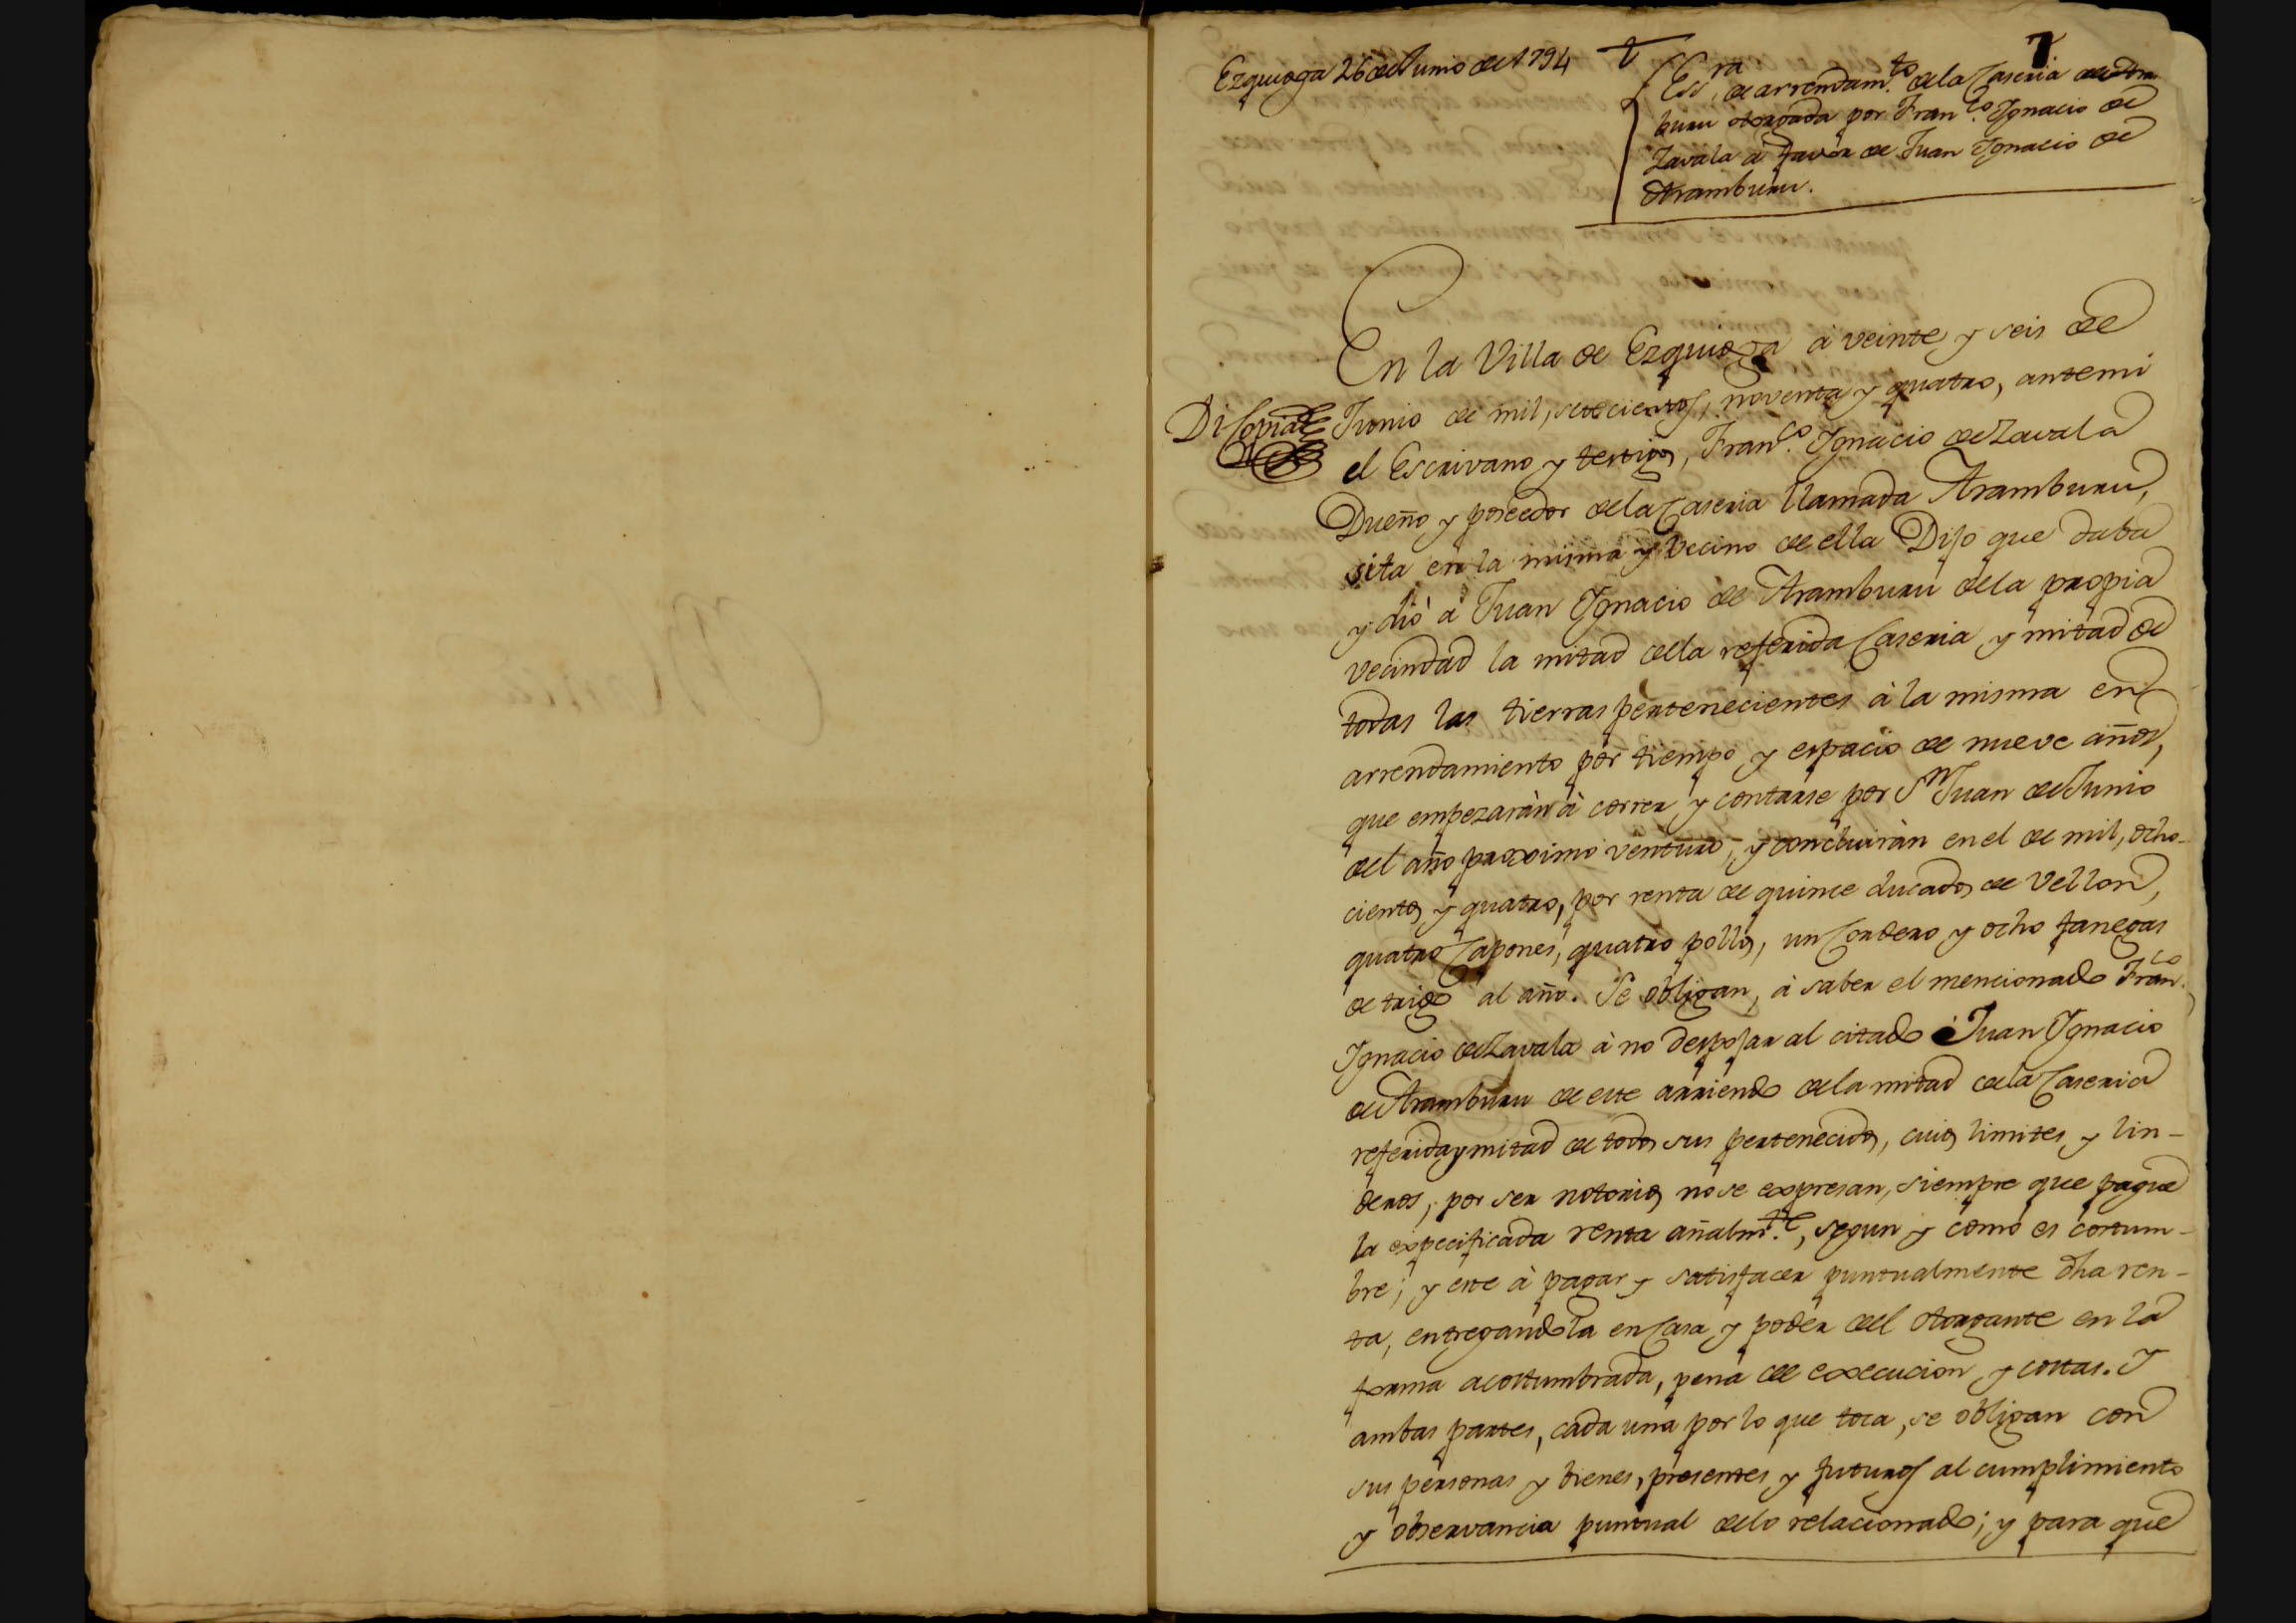 Ezquioga 26 de Junio de 1794
7
Essra de arrendamto de la Caseria de Aram
buru otorgada por Franco Ignacio de
Zavala a favor de Juan Ignacio de
Aramburu.
En la Villa de Ezquioga à veinte y seis de
Di Copia
Junio de mil, setecientos, noventa y quatro, antemi
el Escrivano y testigos, Franco Ignacio de Zavala
Dueño y poseedor de la Caseria llamada Aramburu,
sita en la misma y Vecino de ella Dijo que daba
y diò à Juan Ignacio de Aramburu de la propia
vecindad la mitad de la referida Caseria y mitad de
todas las tierras pertenecientes à la misma en
arrendamiento por tiempo y espacio de nueve años,
que empezaràn à correr y contarse por Sn Juan de Junio
del año proximo venturo, y concluiràn en el de mil, ocho-
cientos y quatro, por renta de quince ducados de Vellon,
quatro Capones, quatro pollos, un Cordero y ocho fanegas
de trigo al año. Se obligan, à saber el mencionado Franco
Ignacio de Zavala à no despojar al citado Juan Ignacio
de Aramburu de este arriendo de la mitad de la Caseria
referida y mitad de todos sus pertenecidos, cuios limites y lin-
deros, por ser notorios no se expresan, siempre que pague
la expecificada renta añalmte, segun y como es costum-
bre; y este à pagar y satisfacer puntualmente dha ren-
ta, entregandola en Casa y poder del otorgante en la
forma acostumbrada, pena de execucion y costas. Y
ambas partes, cada una por lo que toca, se obligan con
sus personas y bienes, presentes y futuros al cumplimiento
y observancia puntual de lo relacionado; y para que